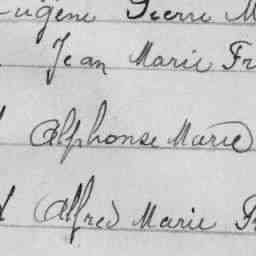 Eugène Pierre M
Jean Marie Fr
Alphonse Marie
Alfred Marie Fr